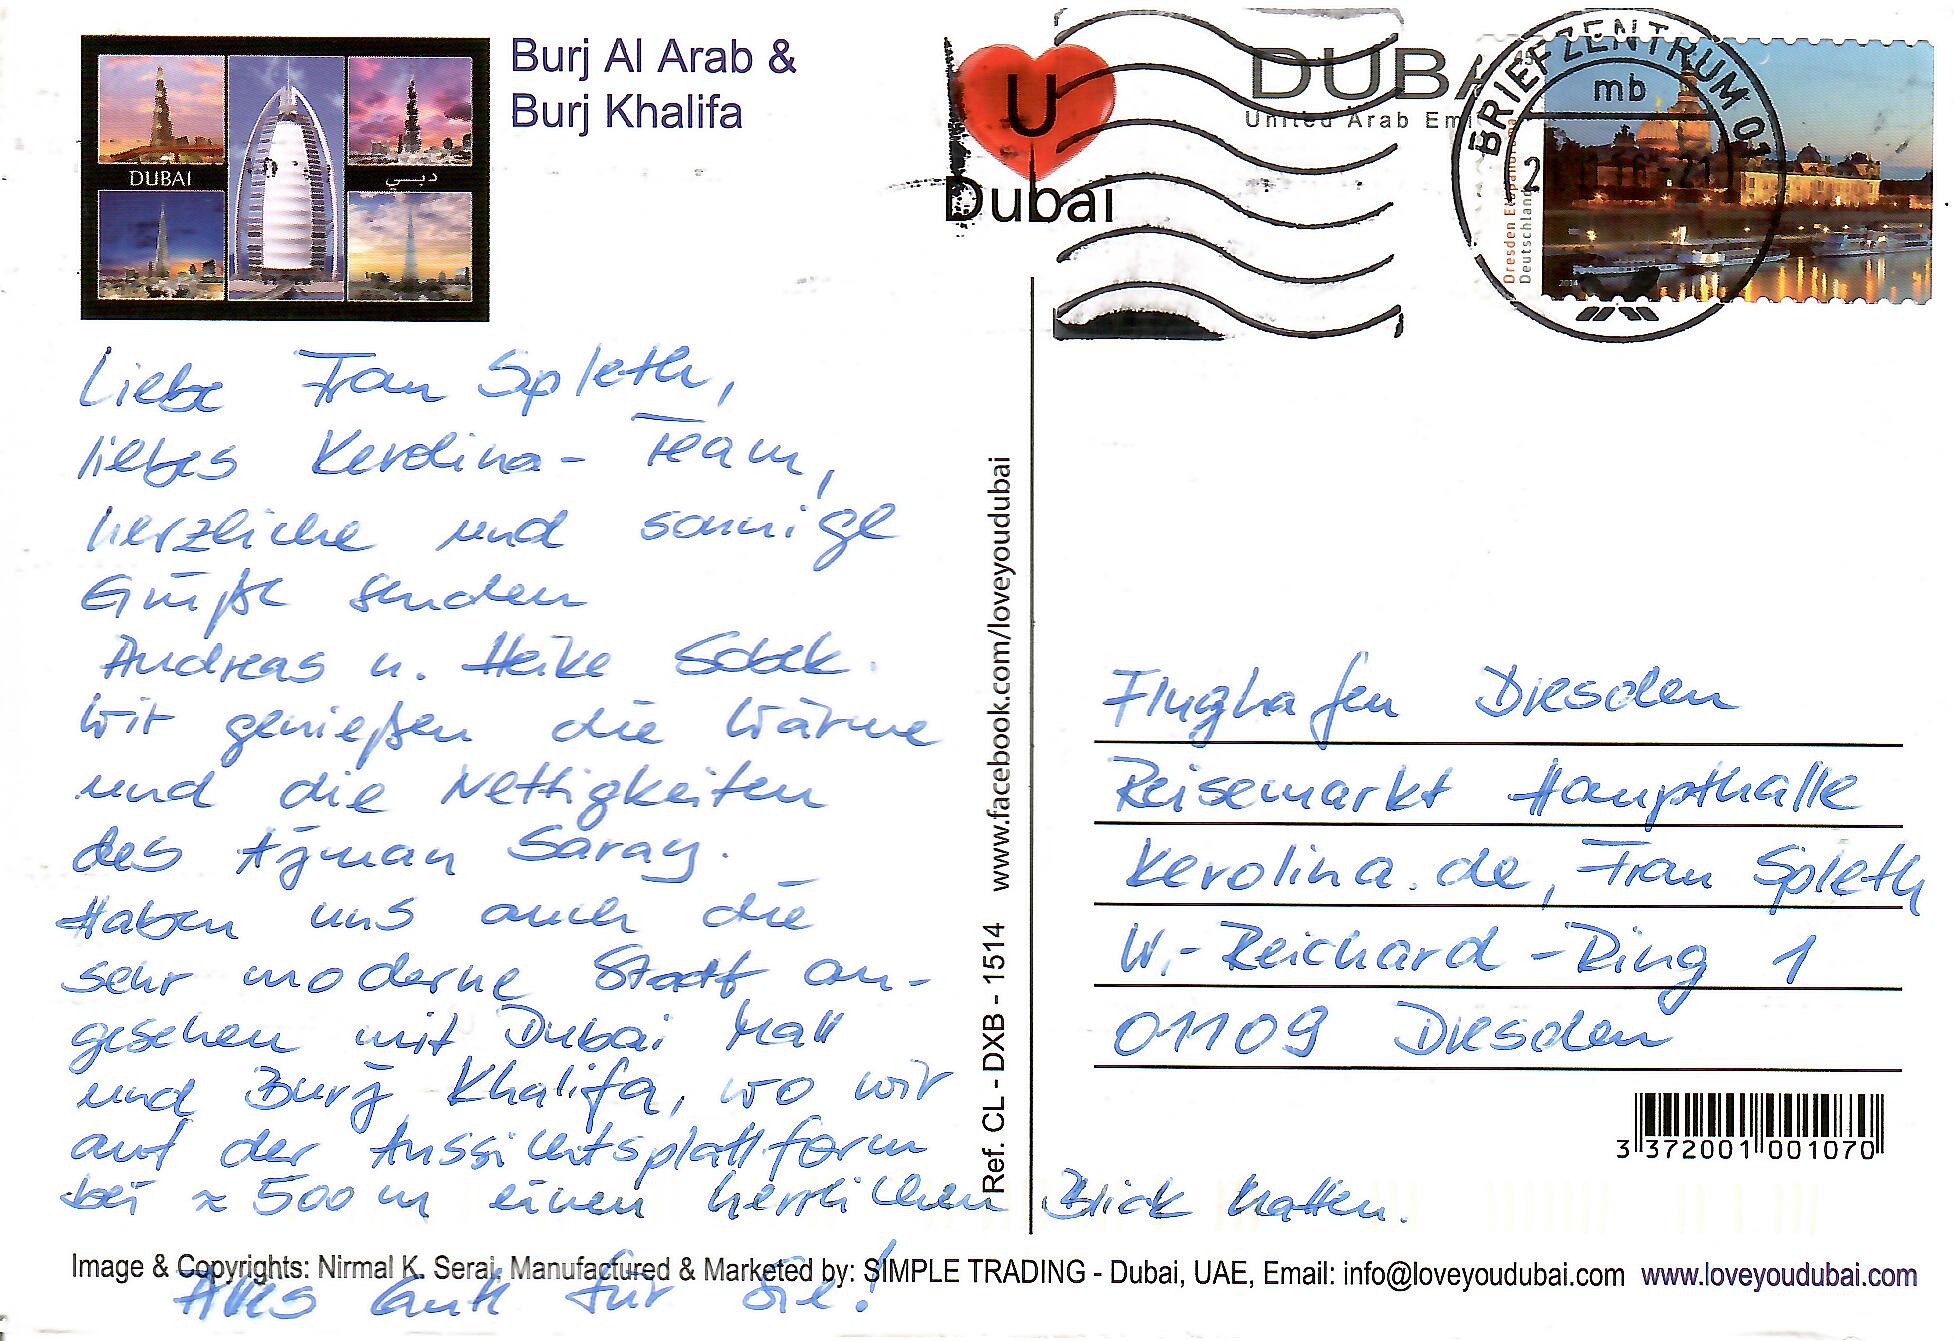 Burj Al Arab &
Burj Khalifa
DUBAI
دبي
U
Dubai
DUBA
United Arab Emi
BRIEFZENTRUM 0
mb
Dresden Elbpanorama
Deutschland
45
2014
Liebe Frau Spleth,
liebes Kerolina-Team,
herzliche und sonnige
Grüße senden
Andreas u. Heike Sobek.
Wir genießen die Wärme
und die Nettigkeiten
des Ajman Saray.
Haben uns auch die
sehr moderne Stadt an-
gesehen mit Dubai Mall
und Burj Khalifa, wo wir
auf der Aussichtsplattform
bei ≈ 500 m einen herrlichen Blick hatten.
Alles Gute für Sie!
Ref. CL - DXB - 1514 www.facebook.com/loveyoudubai
Flughafen Dresden
Reisemarkt Haupthalle
Kerolina.de, Frau Spleth
W.-Reichard-Ring 1
01109 Dresden
3 372001 001070
Image & Copyrights: Nirmal K. Serai, Manufactured & Marketed by: SIMPLE TRADING - Dubai, UAE, Email: info@loveyoudubai.com www.loveyoudubai.com